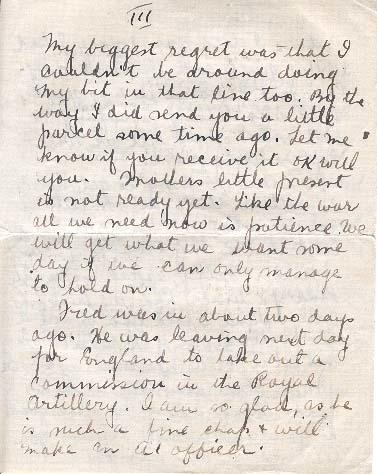 III
My biggest regret was that I
couldn't be around doing
my bit in that line too. By the
way I did send you a little
parcel some time ago. Let me
know if you receive it OK will
you. Mothers little present
is not ready yet. Like the war
all we need now is patience. We
will get what we want some
day if we can only manage
to hold on.
Fred was in about two days
ago. He was leaving next day
for England to take out a
commission in the Royal
Artillery. I am so glad, as he
is such a fine chap & will
make an A1 officer.